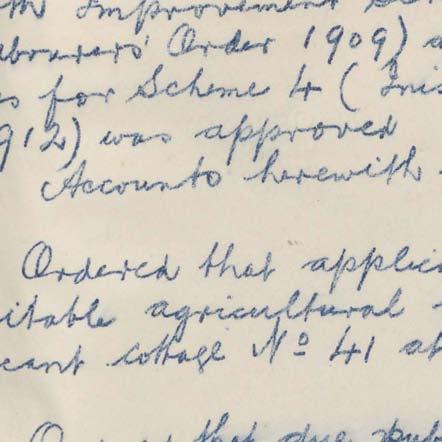 th Improvement Sch
abourers' Order 1909) a
es for Scheme 4 (Inis
912) was approved
Accounts herewith
Ordered that applic
itable agricultural
cant cottage Nº 41 at
that due pub